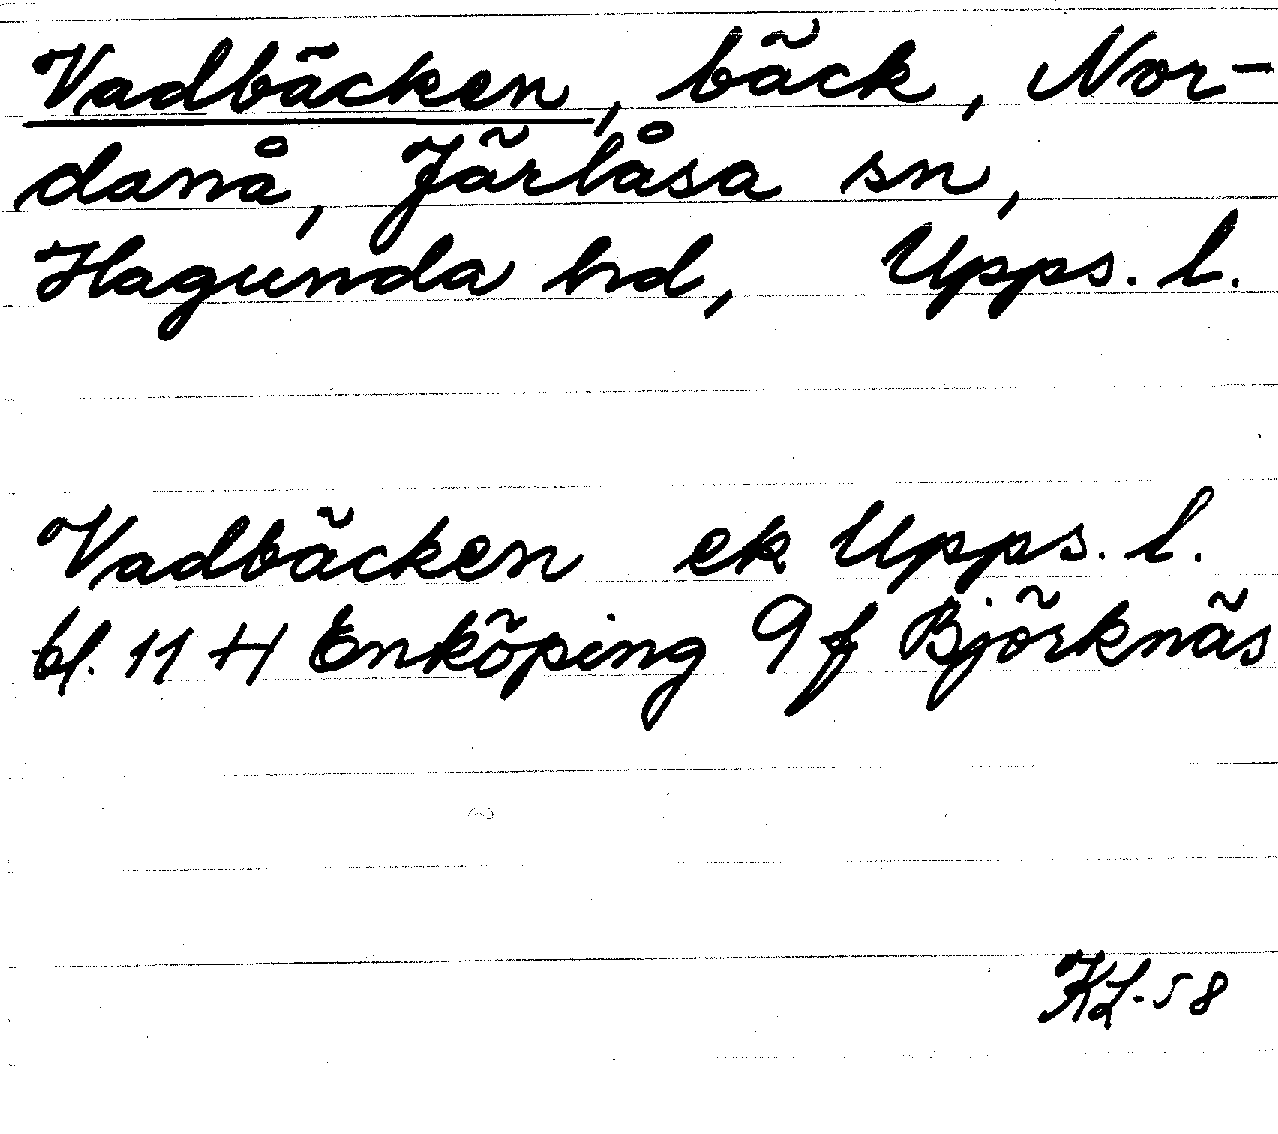 Vadbäcken, bäck, Nor-
danå, Järlåsa sn,
Hagunda hd, Upps. l.
Vadbäcken ek Upps. l.
bl. 11 H Enköping 9 f Björknäs
KL-58